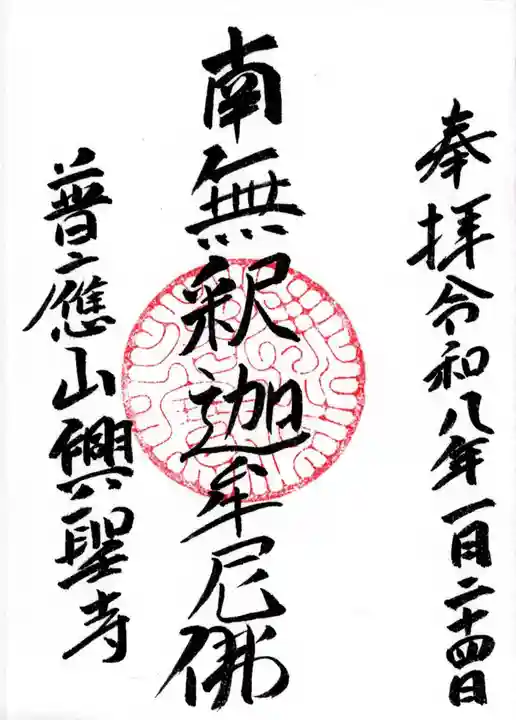 奉拝令和八年一月二十四日
南無釈迦牟尼佛
普應山興聖寺